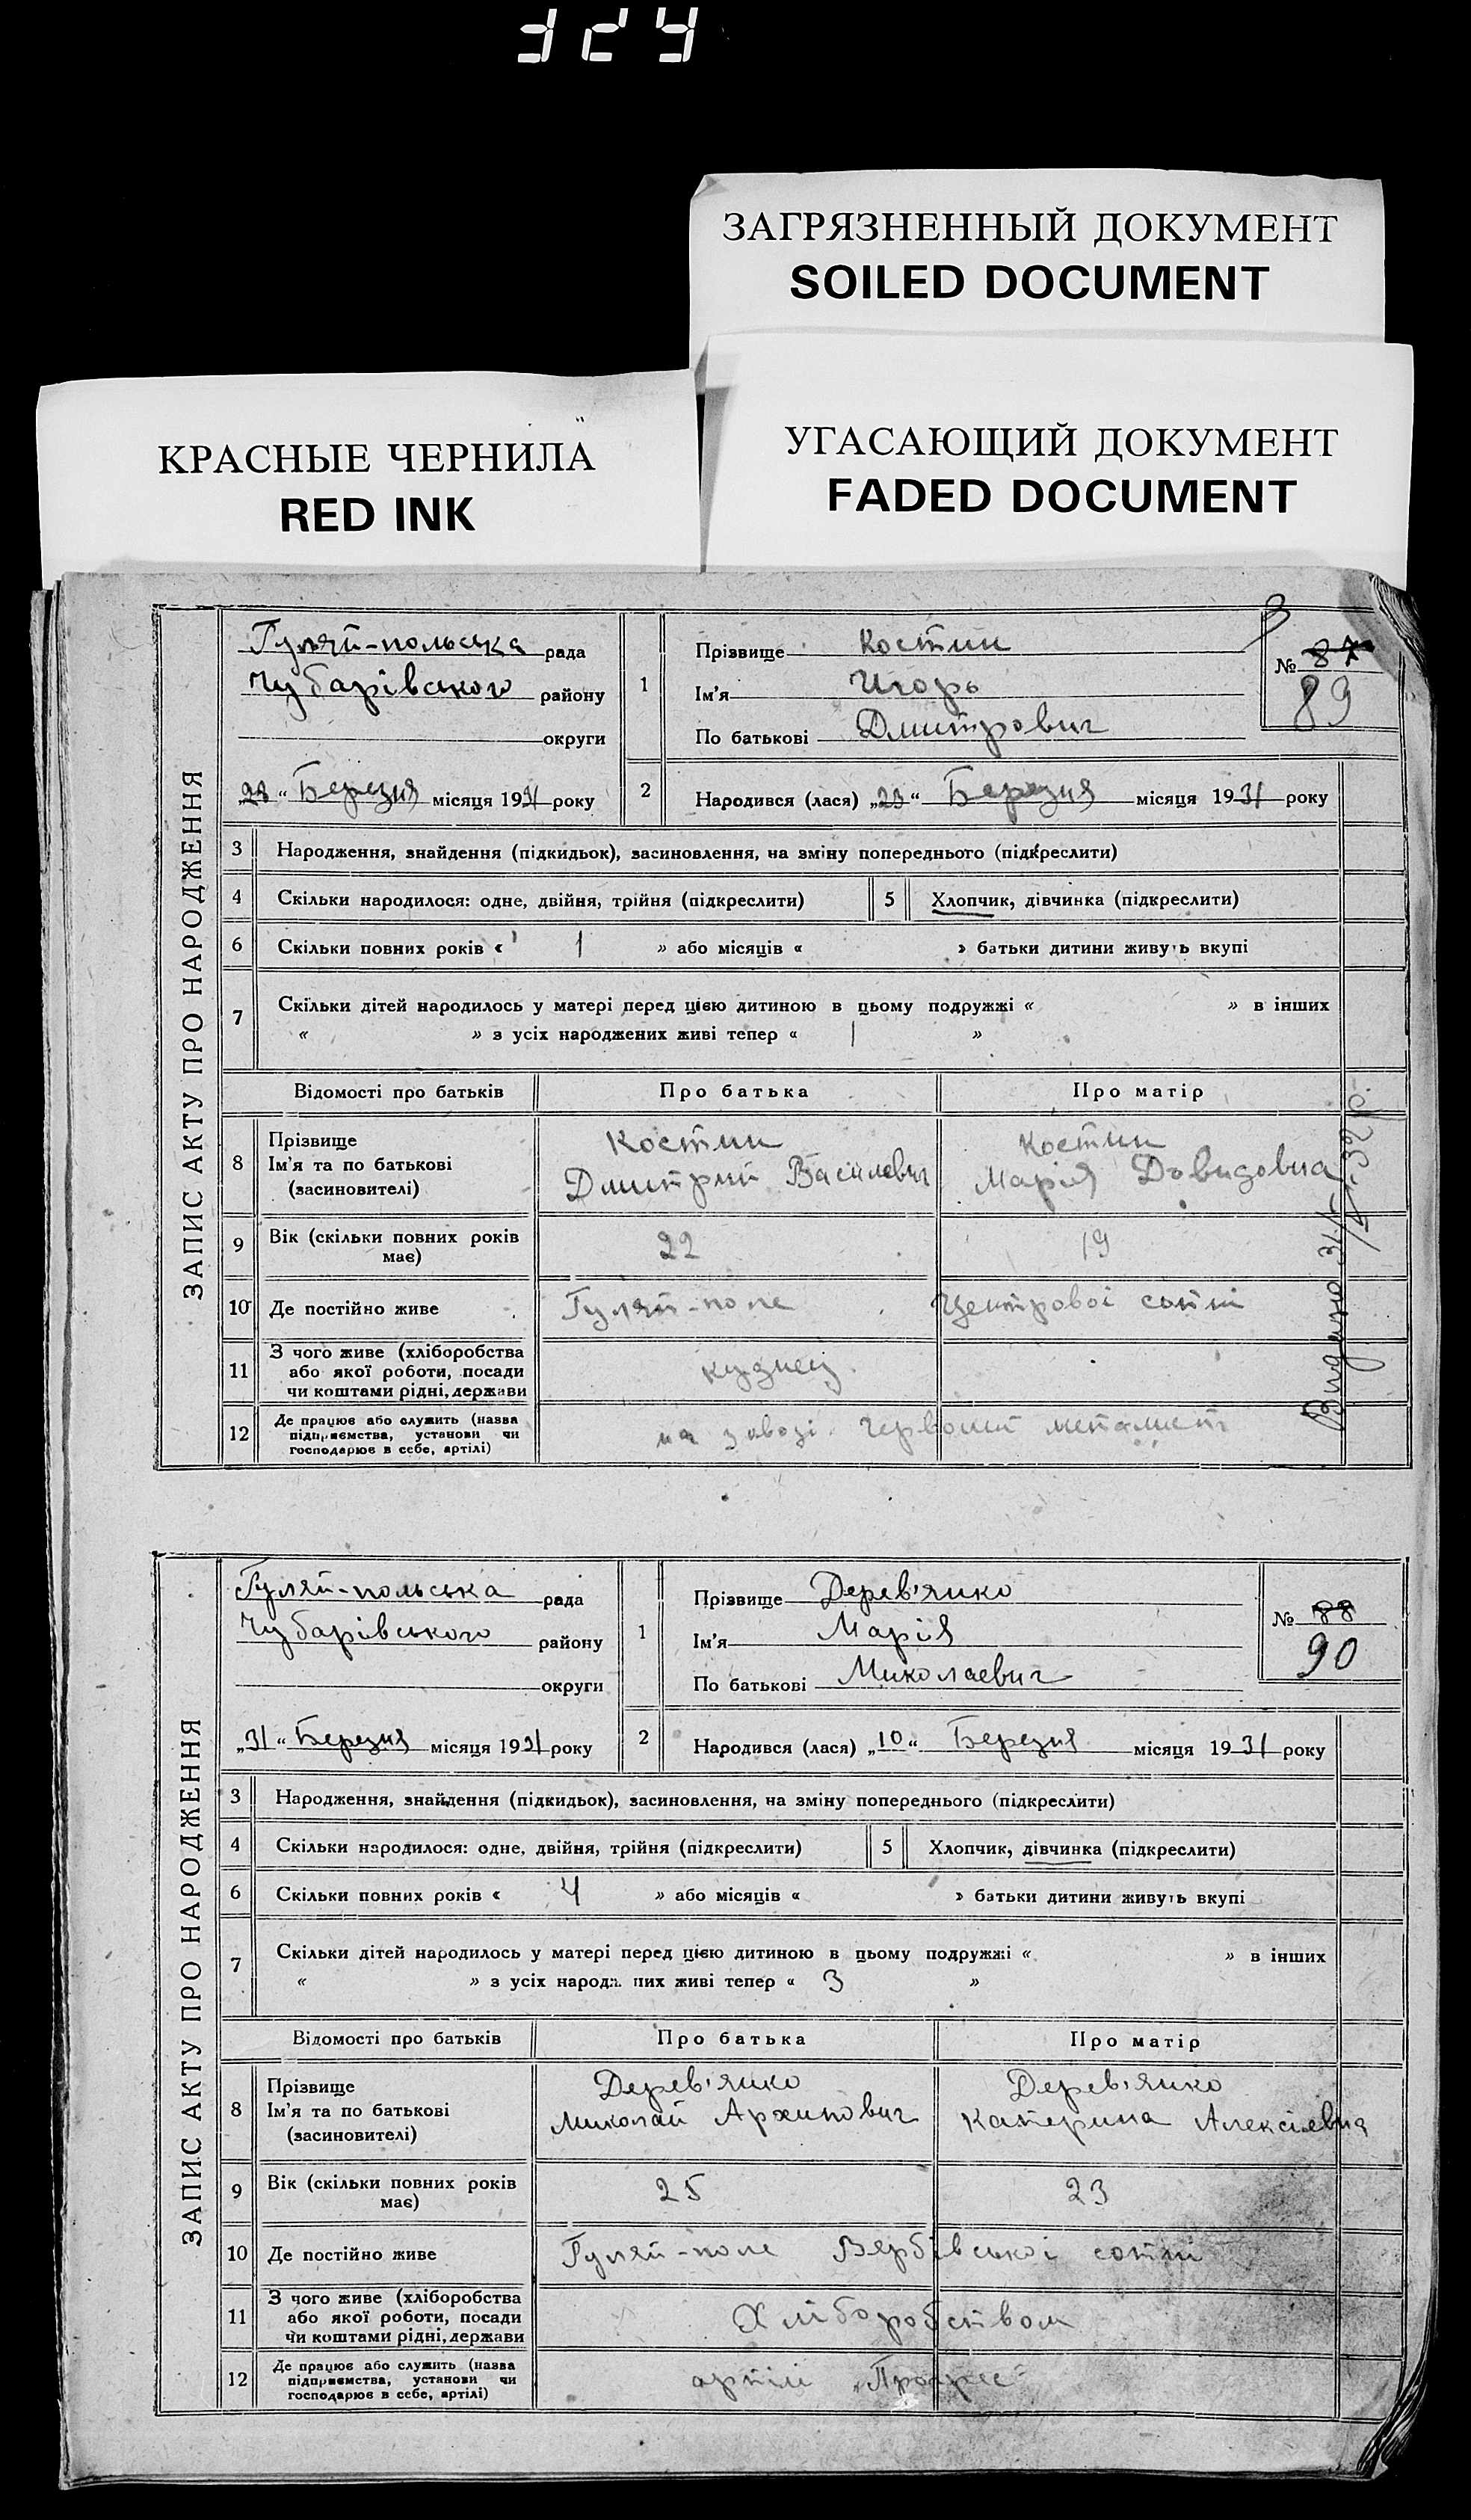 ЗАГРЯЗНЕННЫЙ ДОКУМЕНТ
SOILED DOCUMENT
КРАСНЫЕ ЧЕРНИЛА
RED INK
УГАСАЮЩИЙ ДОКУМЕНТ
FADED DOCUMENT
ЗАПИС АКТУ ПРО НАРОДЖЕННЯ
Гуляй-польська рада
Чубарівського району
округи
1
Прізвище Костин
Ім'я Игорь
По батькові Дмитрович
№ 87
89
„28“ Березня місяця 1931 року
2
Народився (лася) „23“ Березня місяця 1931 року
3 Народження, знайдення (підкидьок), засиновлення, на зміну попереднього (підкреслити)
4 Скільки народилося: одне, двійня, трійня (підкреслити) 5 Хлопчик, дівчинка (підкреслити)
6 Скільки повних років « 1 » або місяців « » батьки дитини живуть вкупі
7 Скільки дітей народилось у матері перед цією дитиною в цьому подружжі « » в інших
« » з усіх народжених живі тепер « 1 »
Відомості про батьків Про батька Про матір
8 Прізвище Костин Костин
Ім'я та по батькові Дмитрий Василевич Марія Довидовна
(засиновителі)
9 Вік (скільки повних років має) 22 19
10 Де постійно живе Гуляй-поле Центрової сотні
11 З чого живе (хліборобства
або якої роботи, посади кузнец
чи коштами рідні, держави
12 Де працює або служить (назва
підприємства, установи чи на заводі Червоний металист
господарює в себе, артілі)
Видано 31/V-32 р.
ЗАПИС АКТУ ПРО НАРОДЖЕННЯ
Гуляй-польська рада
Чубарівського району
округи
1
Прізвище Дерев'янко
Ім'я Марія
По батькові Миколаевич
№ 88
90
„31“ Березня місяця 1931 року
2
Народився (лася) „10“ Березня місяця 1931 року
3 Народження, знайдення (підкидьок), засиновлення, на зміну попереднього (підкреслити)
4 Скільки народилося: одне, двійня, трійня (підкреслити) 5 Хлопчик, дівчинка (підкреслити)
6 Скільки повних років « 4 » або місяців « » батьки дитини живуть вкупі
7 Скільки дітей народилось у матері перед цією дитиною в цьому подружжі « » в інших
« » з усіх народжених живі тепер « 3 »
Відомості про батьків Про батька Про матір
8 Прізвище Дерев'янко Дерев'янко
Ім'я та по батькові Миколай Архипович Катерина Алексієвна
(засиновителі)
9 Вік (скільки повних років має) 25 23
10 Де постійно живе Гуляй-поле Вербівської сотні
11 З чого живе (хліборобства
або якої роботи, посади Хліборобством
чи коштами рідні, держави
12 Де працює або служить (назва
підприємства, установи чи артілі „Прогрес“
господарює в себе, артілі)